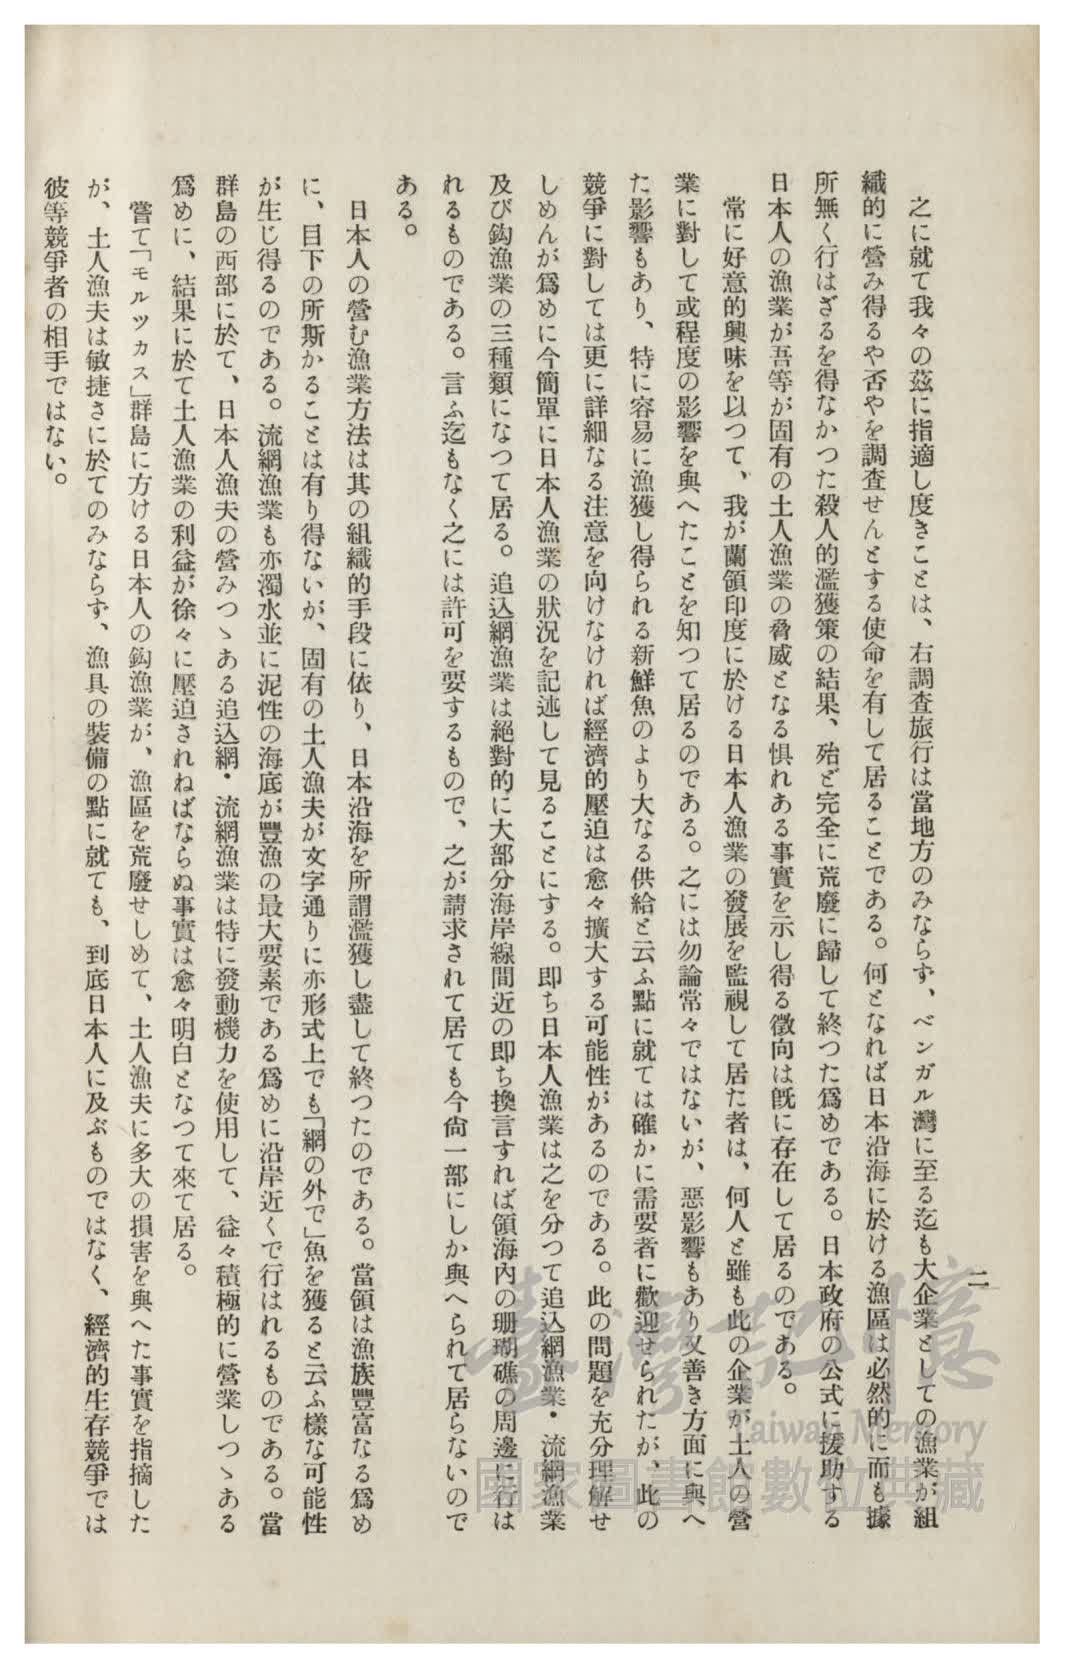 二
之に就て我々の茲に指適し度きことは、右調査旅行は當地方のみならず、ベンガル灣に至る迄も大企業としての漁業が組
織的に營み得るや否やを調査せんとする使命を有して居ることである。何となれば日本沿海に於ける漁區は必然的に而も據
所無く行はざるを得なかつた殺人的濫獲策の結果、殆ど完全に荒廢に歸して終つた爲めである。日本政府の公式に援助する
日本人の漁業が吾等が固有の土人漁業の脅威となる惧れある事實を示し得る徵向は既に存在して居るのである。
常に好意的興味を以つて、我が蘭領印度に於ける日本人漁業の發展を監視して居た者は、何人と雖も此の企業が土人の營
業に對して或程度の影響を與へたことを知つて居るのである。之には勿論常々ではないが、惡影響もあり又善き方面に與へ
た影響もあり、特に容易に漁獲し得られる新鮮魚のより大なる供給と云ふ點に就ては確かに需要者に歡迎せられたが、此の
競爭に對しては更に詳細なる注意を向けなければ經濟的壓迫は愈々擴大する可能性があるのである。此の問題を充分理解せ
しめんが爲めに今簡單に日本人漁業の狀況を記述して見ることにする。卽ち日本人漁業は之を分つて追込網漁業・流網漁業
及び鈎漁業の三種類になつて居る。追込網漁業は絕對的に大部分海岸線間近の卽ち換言すれば領海內の珊瑚礁の周邊に行は
れるものである。言ふ迄もなく之には許可を要するもので、之が請求されて居ても今尙一部にしか與へられて居らないので
ある。
日本人の營む漁業方法は其の組織的手段に依り、日本沿海を所謂濫獲し盡して終つたのである。當領は漁族豐富なる爲め
に、目下の所斯かることは有り得ないが、固有の土人漁夫が文字通りに亦形式上でも「網の外で」魚を獲ると云ふ樣な可能性
が生じ得るのである。流網漁業も亦濁水並に泥性の海底が豐漁の最大要素である爲めに沿岸近くで行はれるものである。當
群島の西部に於て、日本人漁夫の營みつゝある追込網・流網漁業は特に發動機力を使用して、益々積極的に營業しつゝある
爲めに、結果に於て土人漁業の利益が徐々に壓迫されねばならぬ事實は愈々明白となつて來て居る。
嘗て「モルツカス」群島に方ける日本人の鈎漁業が、漁區を荒廢せしめて、土人漁夫に多大の損害を與へた事實を指摘した
が、土人漁夫は敏捷さに於てのみならず、漁具の裝備の點に就ても、到底日本人に及ぶものではなく、經濟的生存競爭では
彼等競爭者の相手ではない。
臺灣記憶
Taiwan Memory
國家圖書館數位典藏